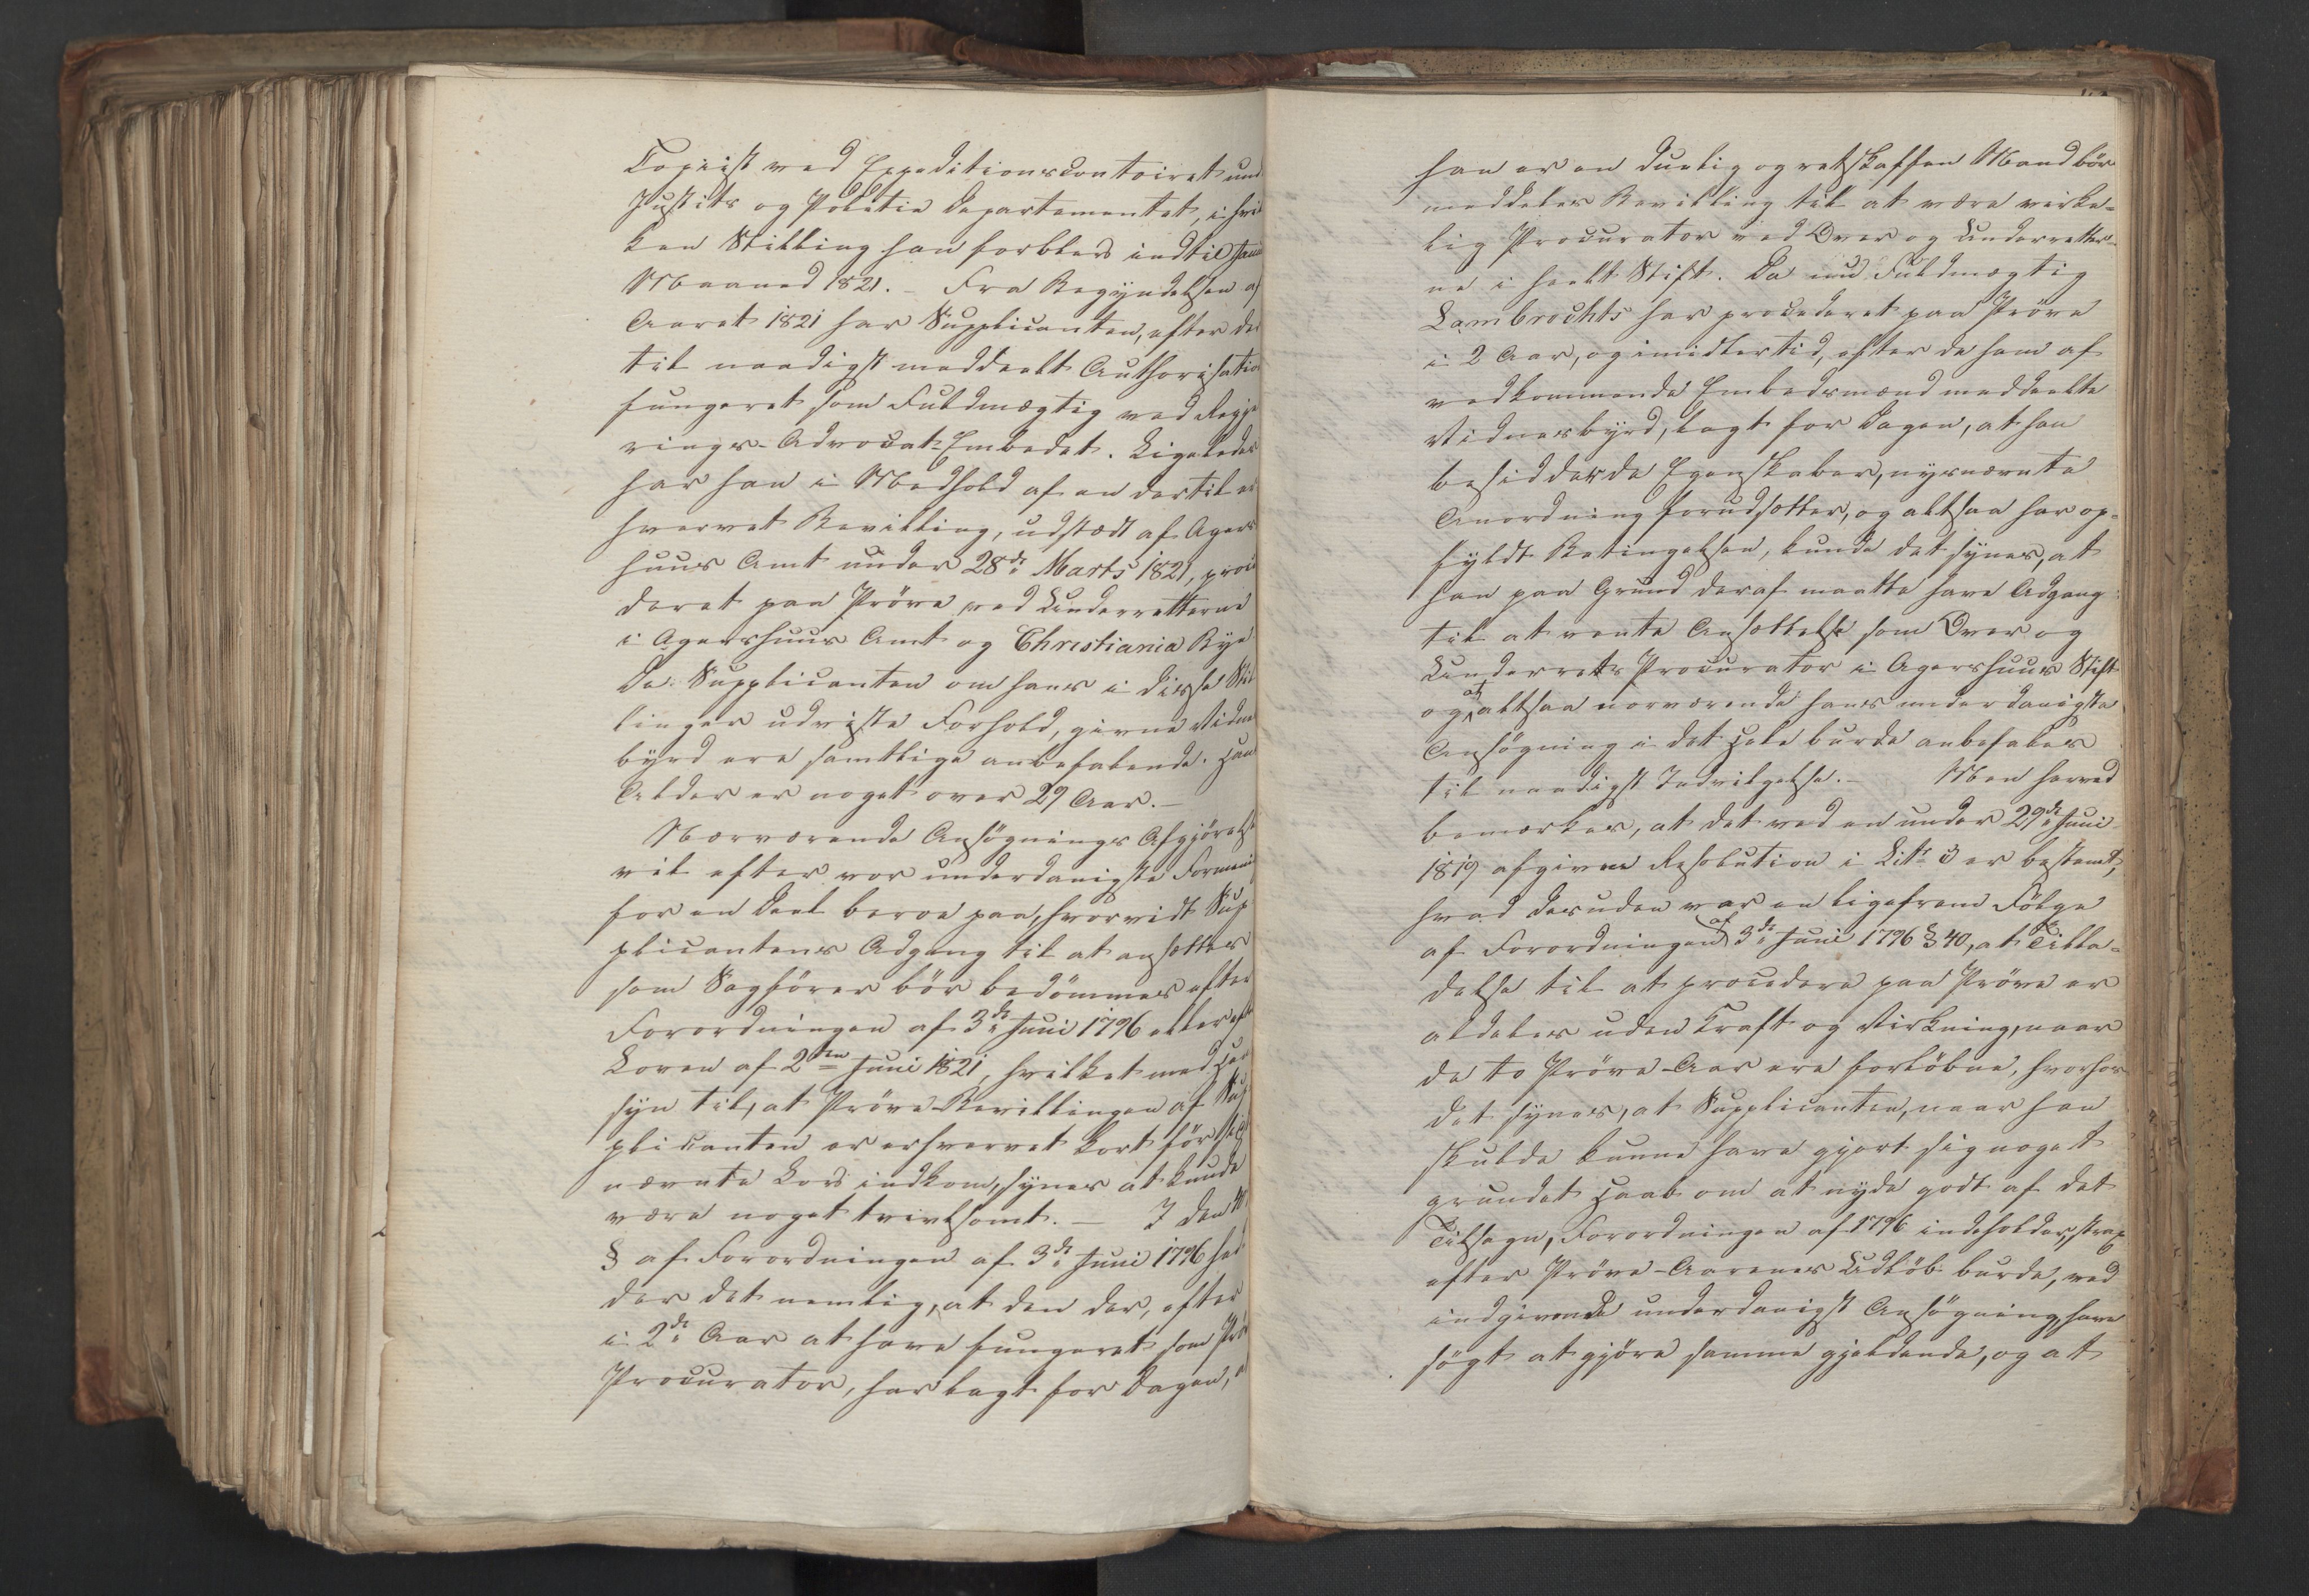 Copiist ved Expeditionscontoiret und
Justits og Politie Departementet, i hvil
ken Stilling han forblev indtil Junii
Maaned 1821. – Fra Begyndelsen af
Aaret 1821 har Supplicanten, efter der
til naadigst meddeelt Authorisation
fungeret som Fuldmægtig ved Regje
rings-Advocat-Embedet. Ligeledes
har han i Medhold af en dertil er
hvervet Bevilling, udstædt af Agers
huus Amt under 28de Marts 1821, proce
deret paa Prøve ved Underretterne
i Agershuus Amt og Christiania Bye
De Supplicanten om hans i disse Stil
linger udviste Forhold, givne Vidnes
byrd ere samtlige anbefalende. Hans
Alder er noget over 29 Aar. –
Nærværende Ansøgnings Afgjørelse
vil efter vor underdanigste Formening
for en Deel beroe paa, hvorvidt Sup
plicantens Adgang til at ansættes
som Sagfører bør bedømmes efter
Forordningen af 3de Juni 1796 eller efter
Loven af 2den Juni 1821, hvilket med Hen
syn til, at Prøve-Bevillingen af Sup
plicanten er erhvervet kort før sidst
nævnte Lov indkom, synes at kunde
være noget tvivlsomt. – I den 40
§ af Forordningen af 3de Juni 1796 hed
der det nemlig, at den der, efter
i 2de Aar at have fungeret som Prøve
Procurator, har lagt for Dagen, at
han er en duelig og retskaffen Mand bør
meddeles Bevilling til at være virke-
lig Procurator ved Over og Underretter-
ne i heelt Stift. Da nu Fuldmægtig
Lambrechts har procederet paa Prøve
i 2 Aar, og imidlertid, efter de ham af
vedkommende Embedsmænd meddeelte
Vidnesbyrd, lagt for Dagen, at han
besidder de Egenskaber, nysnævnte
Anordning forudsætter, og altsaa har op-
fyldt Betingelsen, kunde det synes, at
han paa Grund deraf maatte have Adgang
til at vente Ansættelse som Over og
Underrets Procurator i Agershuus Stift
og at altsaa nærværende hans underdanigste
Ansøgning i det Hele burde anbefales
til naadigst Indvilgelse. – Men herved
bemærkes, at det ved en under 29de Juni
1819 afgiven Resolution i Litr. 3 er bestemt,
hvad desuden var en ligefrem Følge
af Forordningen af 3de Juni 1796 § 40, at Tilla-
delse til at procedere paa Prøve er
aldeles uden Kraft og Virkning, naar
de to Prøve-Aar ere forløbne, hvorfor
det synes, at Supplicanten, naar han
skulde kunne have gjort sig noget
grundet Haab om at nyde godt af det
Tilsagn, Forordningen af 1796 indeholder, strax
efter Prøve-Aarenes Udløb burde, ved
indgivende underdanigst Ansøgning, have
søgt at gjøre samme gjeldende, og at